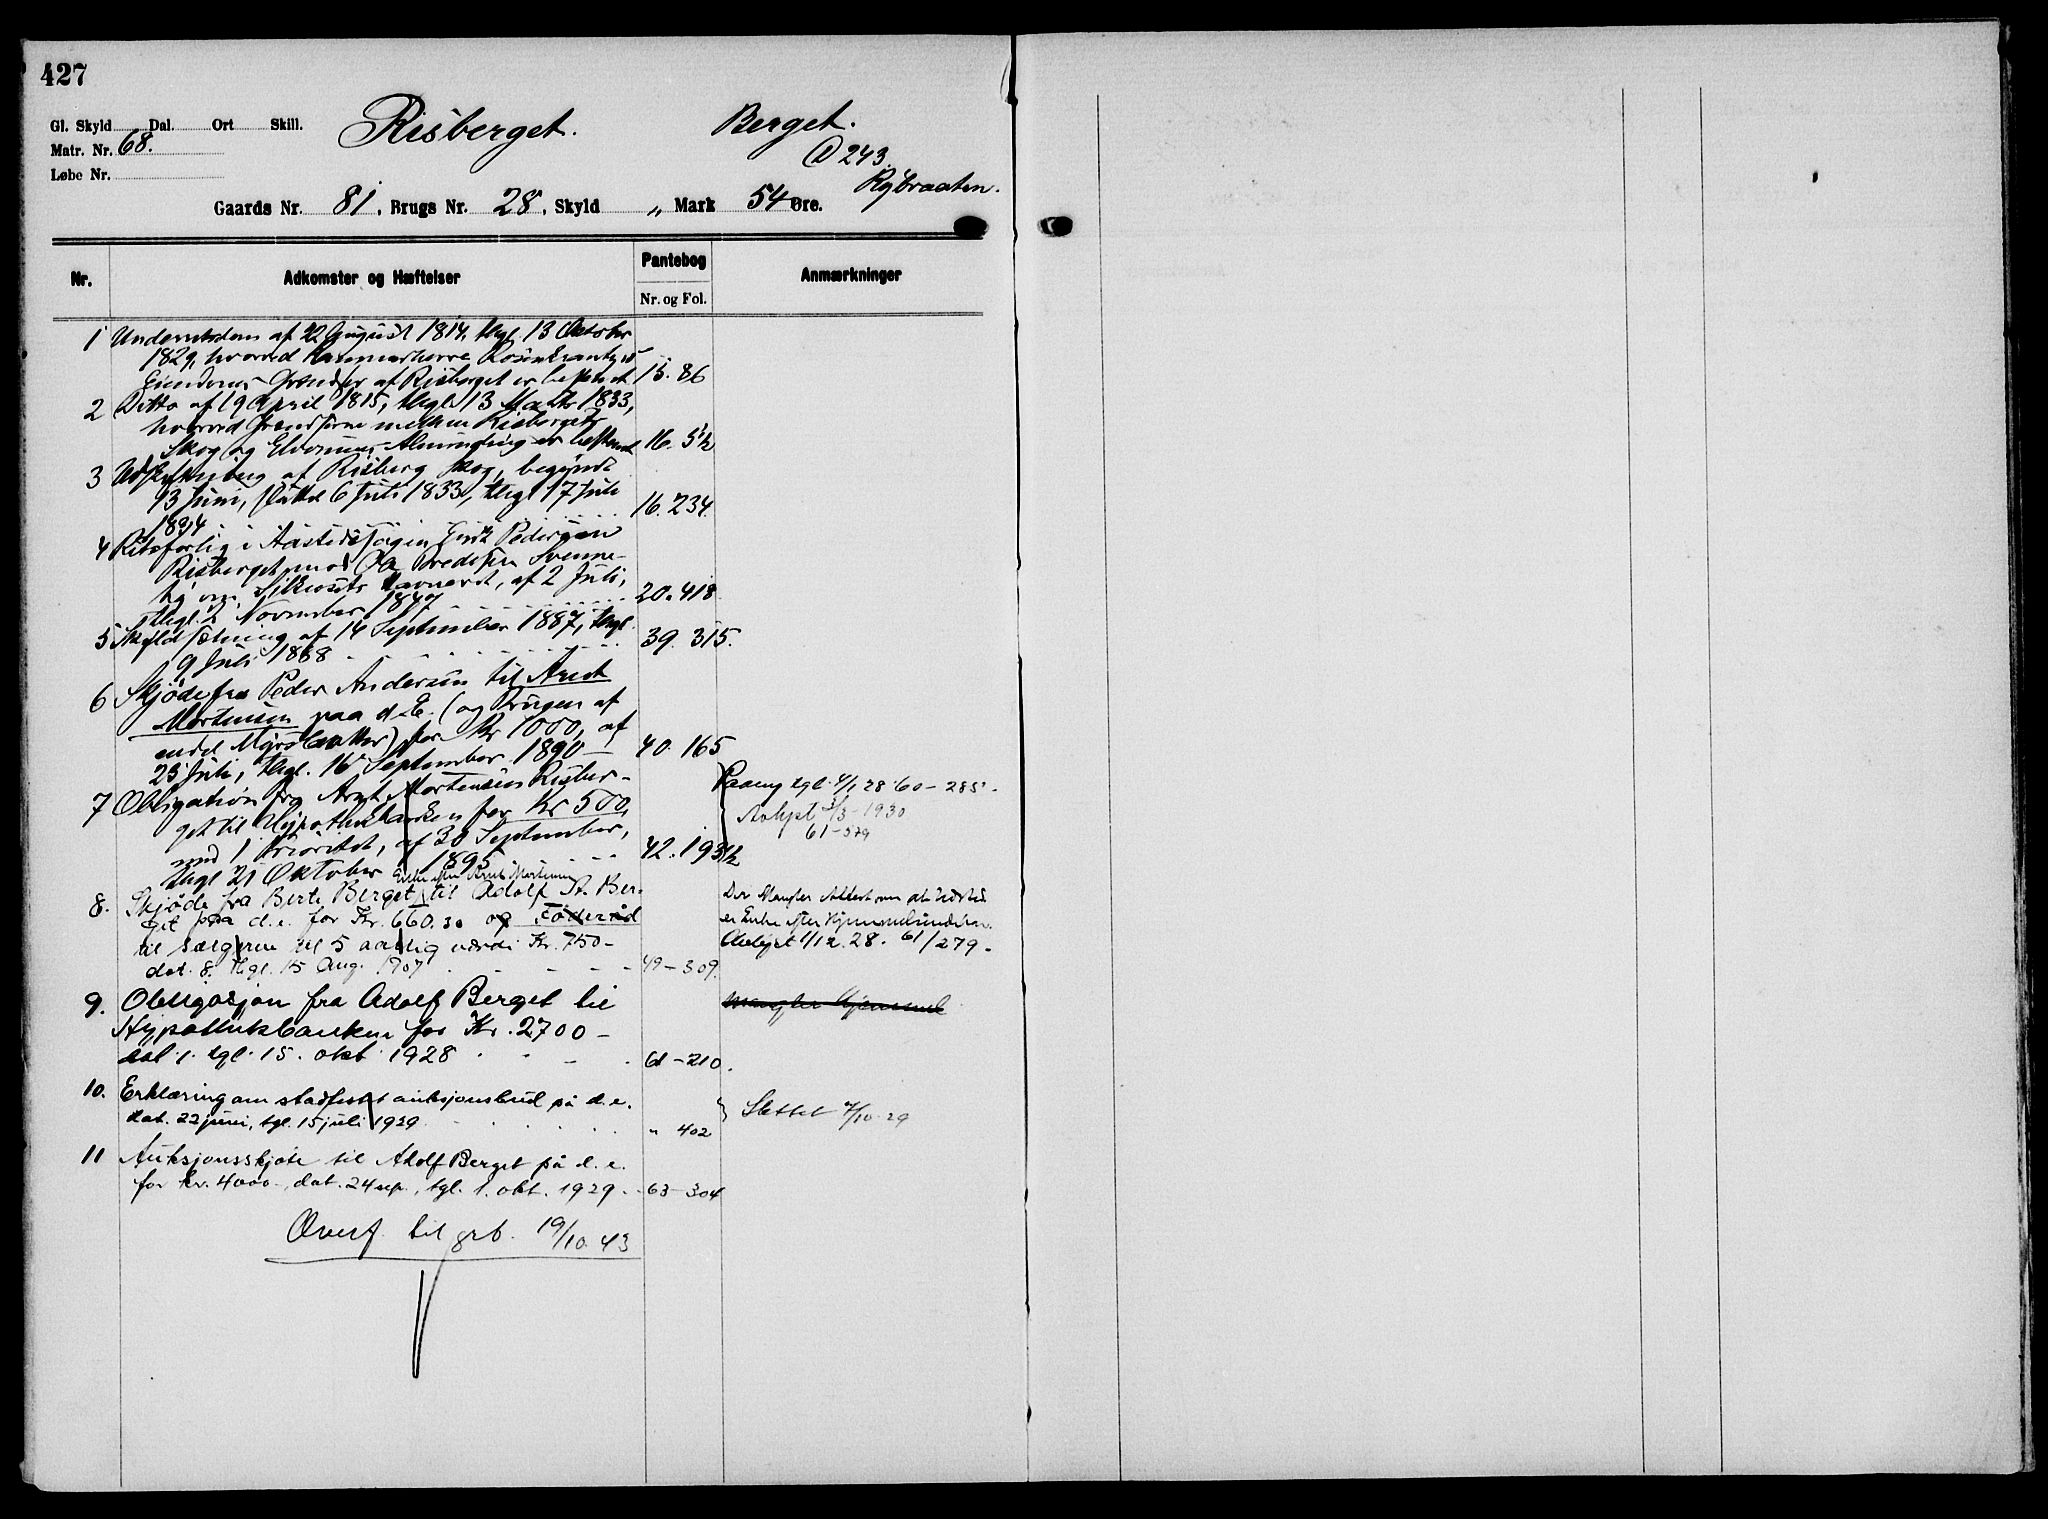 427
Gl. Skyld Dal. Ort Skill.
Risberget.
Berget.
Matr. Nr. 68.
D 243.
Løbe Nr.
Rybraaten.
Gaards Nr. 81, Brugs Nr. 28, Skyld „ Mark 54 Øre.
Nr. Adkomster og Hæftelser Pantebog Anmærkninger
Nr. og Fol.
1 Underretsdom af 22 August 1814, thgl. 13 Oktober
1829, hvorved Kammerherre Rosenkrantz's
Eiendoms Grændser af Risberget er bestemt 15. 86
2 Ditto af 19 April 1815, thgl. 13 Marts 1833,
hvorved Grændserne mellem Risbergets
Skog og Elverums Almending er bestemt 16. 5½
3 Udskiftning af Risberg Skog, begyndt
13 Juni, sluttet 6 Juli 1833, thgl 17 Juli
1834 16. 234.
4 Retsforlig i Aastedssagen Pedersen
Risberget mod Ola Svenne-
by om Havneret, af 2 Juli,
thgl. 2 November 1847 20. 418
5 Skyldsætning af 14 September 1887, thgl.
9 Juli 1888 39. 315.
6 Skjøde fra Peder Andersen til Arnt
Mortensen paa d.E. (og Brugen af
endel Myrslaatter) for Kr 1000, af
25 Juli, thgl. 16 September 1890 40. 165
7 Obligation fra Arnt Mortensen Risber-
get til Hypothekbanken for Kr 500,
med 1 Prioritet, af 30 September,
thgl 21 Oktober 1895 42. 193½
tgl. 4/1 28 60 – 285.
Avlyst 3/3 – 1930
61 – 579
Enke efter Arnt Mortensen
8. Skjøde fra Berte Berget til Adolf A. Ber-
get paa d.e. for Kr. 660.30 og Føderåd
til sælgeren til 5 aarlig værdi Kr. 750 –
dat. 8. thgl. 15 Aug. 1907 49 – 309.
Der Mangler Attest om at Udsteder
er Enke efter Hjemmelsinnehav.
Avlyst 1/12. 28. 61/279 –
9. Obligasjon fra Adolf Berget til
Hypotekbanken for Kr. 2700 –
dat. 1. tgl. 15. okt 1928 61 – 210.
Mangler Hjemmel
10. Erklæring om stadfestet auksjonsbud på d.e.
dat. 22 juni, tgl. 15 juli 1929 " 402
Slettet 7/10 – 29
11 Auksjonsskjøte til Adolf Berget på d.e.
for kr. 4000 –, dat. 24 sep., tgl. 1. okt. 1929 – 63 – 304
Overf. til grb. 19/10. 43